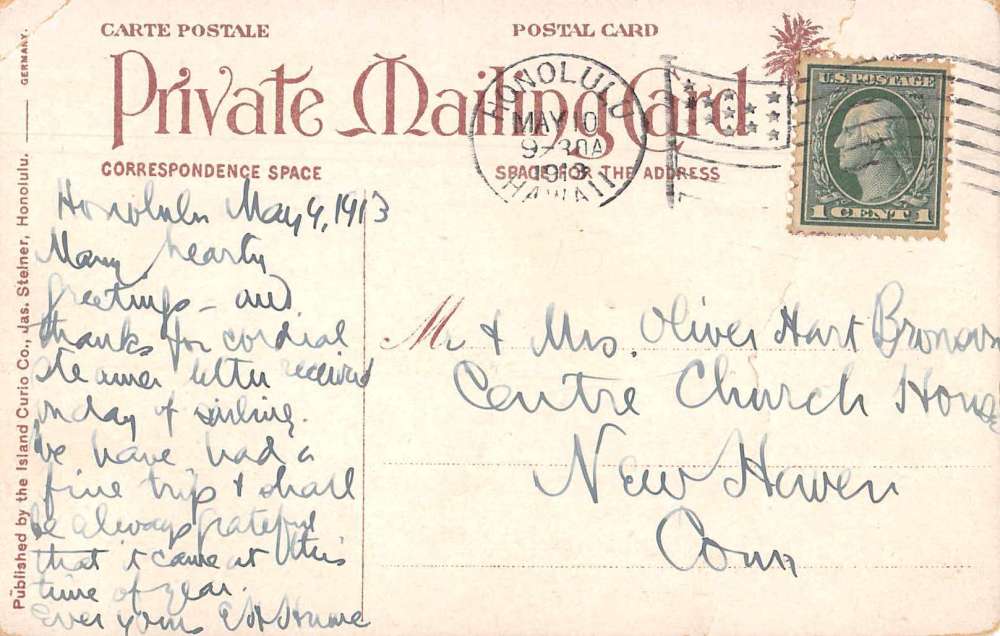 CARTE POSTALE
POSTAL CARD
Private Mailing Card
CORRESPONDENCE SPACE
SPACE FOR THE ADDRESS
HONOLULU
MAY 10
9-30A
1913
HAWAII
U.S. POSTAGE
1 CENT 1
Honolulu May 9, 1913
Many hearty
greetings - and
thanks for cordial
steamer letter received
on day of sailing.
We have had a
fine trip & shall
be always grateful
that it came at this
time of year.
Ever yours E H Hume
Mr & Mrs. Oliver Hart Bronson
Centre Church House
New Haven
Conn
Published by the Island Curio Co., Jas. Steiner, Honolulu. GERMANY.